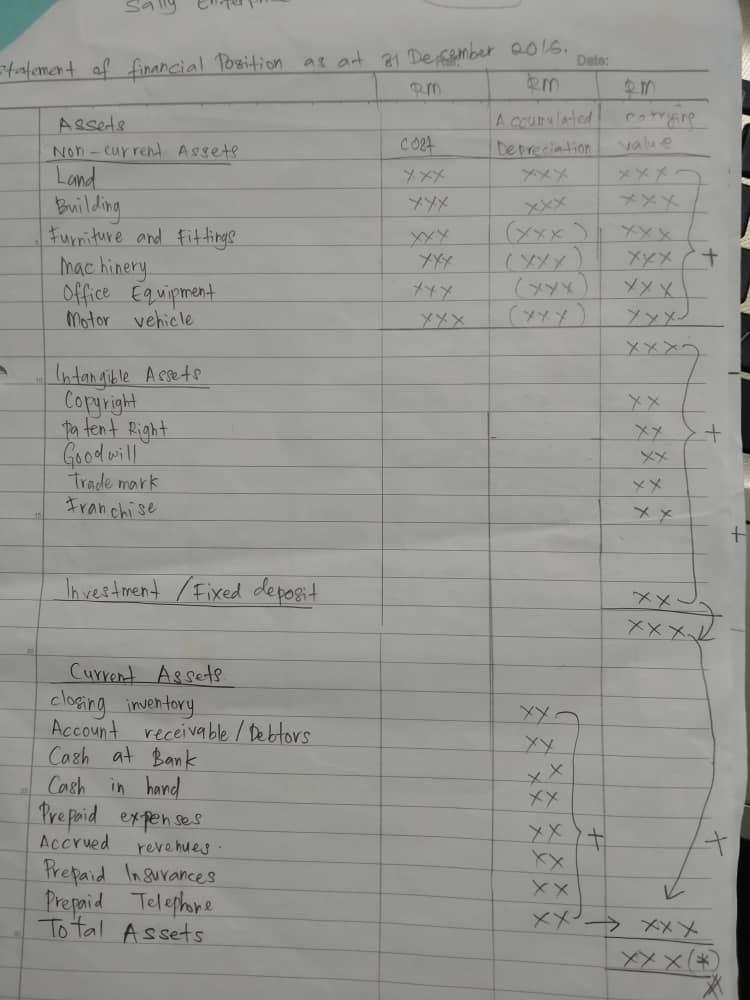 Sally Enterpri
Statement of financial Position as at 31 December 2016. Date:
RM RM RM
Assets Accumulated carrying
Non-current Assets cost Depreciation value
Land xxx xxx xxx
Building xxx xxx xxx
Furniture and Fittings xxx (xxx) xxx
Machinery xxx (xxx) xxx +
Office Equipment xxx (xxx) xxx
Motor vehicle xxx (xxx) xxx
xxx
Intangible Assets
Copyright xx
Patent Right xx +
Goodwill xx
Trade mark xx
Franchise xx
+
Investment / Fixed deposit xx
xxx
Current Assets
closing inventory xx
Account receivable / Debtors xx
Cash at Bank xx
Cash in hand xx
Prepaid expenses xx +
Accrued revenues. xx +
Prepaid Insurances xx
Prepaid Telephone xx → xxx
Total Assets xxx (*)